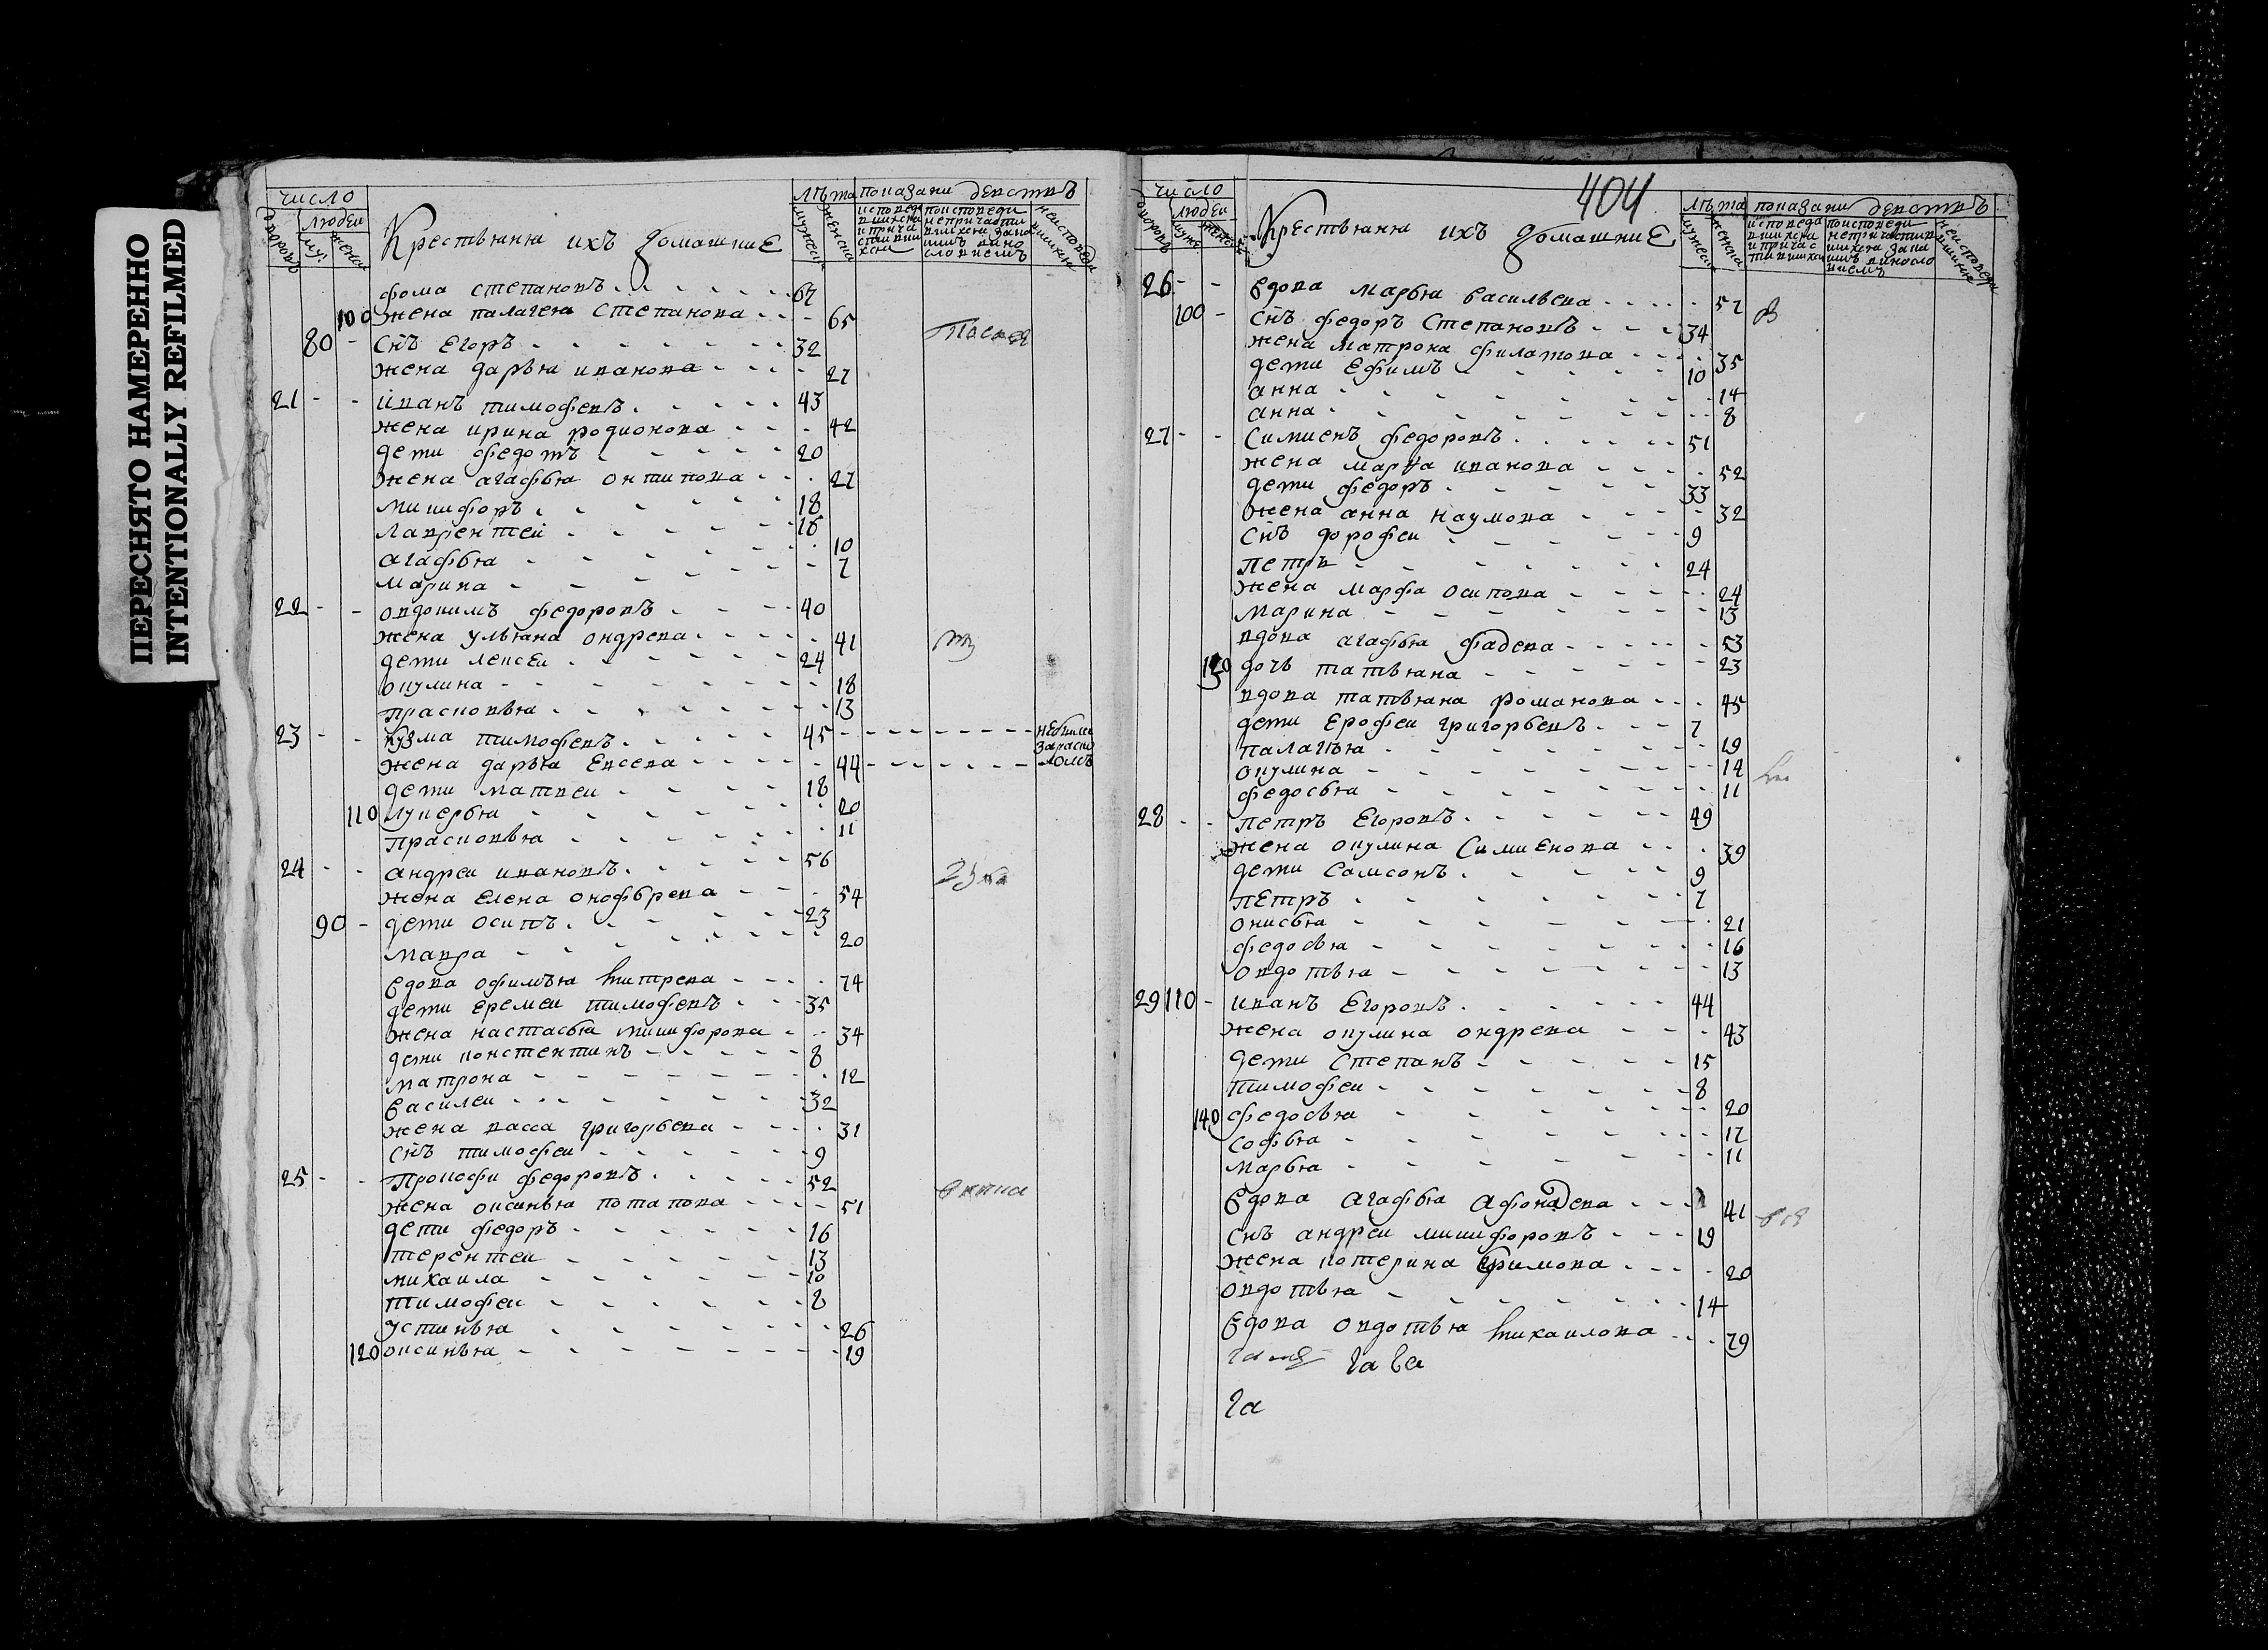 ПЕРЕСНЯТО НАМЕРЕННО
INTENTIONALLY REFILMED
число
людеи
Крествяня ихъ домашние
лѣта показани деиствъ
фома степановъ 67
100 жена палагея степанова 65
80 снъ егоръ 32
жена дарья иванова 27
21 иванъ тимофевъ 43
жена ирина родионова 42
дети федотъ 20
жена агафья онтипова 27
микифоръ 18
лаврентеи 16
агафья 10
марина 7
22 овдокимъ федоровъ 40
жена ульяна ондрева 41
дети лексеи 24
окулина 18
прасковья 13
23 кузма тимофевъ 45 небыли
жена дарья евсева 44 зараско
ломъ
дети матвеи 18
110 лукерья 20
прасковья 11
24 андреи ивановъ 56
жена елена онофрева 54
90 дети осипъ 23
мавра 20
вдова офимья митрева 74
дети еремеи тимофевъ 35
жена настасья микифорова 34
дети констентинъ 8
матрона 12
василеи 32
жена васса григорьева 31
снъ тимофеи 9
25 прокофи федоровъ 52
жена оксинья потапова 51
дети федоръ 16
терентеи 13
михаила 10
тимофеи 8
устинья 26
120 оксинья 19
404
число
людеи
Крествяня ихъ домашние
лѣта показани деиствъ
26 вдова марья васильева 57
100 снъ федоръ степановъ 34
жена матрона филатова 35
дети ефимъ 10
анна 14
анна 8
27 симиенъ федоровъ 51
жена марья иванова 52
дети федоръ 33
жена анна наумова 32
снъ дорофеи 9
петръ 24
жена марфа осипова 24
марина 13
вдова агафья фадева 53
130 дочь татьяна 23
вдова татьяна романова 45
дети ерофеи григорьевъ 7
палагѣя 19
окулина 14
федосья 11
28 петръ егоровъ 49
жена окулина симиенова 39
дети самсонъ 9
петръ 7
онисья 21
федосья 16
овдотья 13
29 110 иванъ егоровъ 44
жена окулина ондрева 43
дети степанъ 15
тимофеи 8
140 федосья 20
софья 17
марья 11
вдова агафья афонадева 41
снъ андреи микифоровъ 19
жена котерина ефимова 20
овдотья 14
вдова овдотья михаилова 79